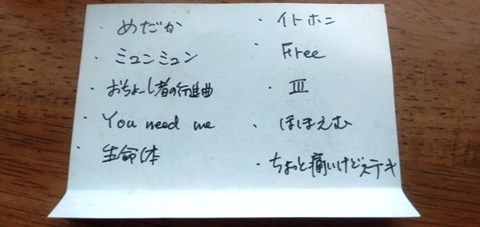 ・めだか
・ミュンミュン
・おちょーし者の行進曲
・You need me
・生命体
・イトホニ
・Free
・Ⅲ
・ほほえむ
・ちょっと痛いけどステキ